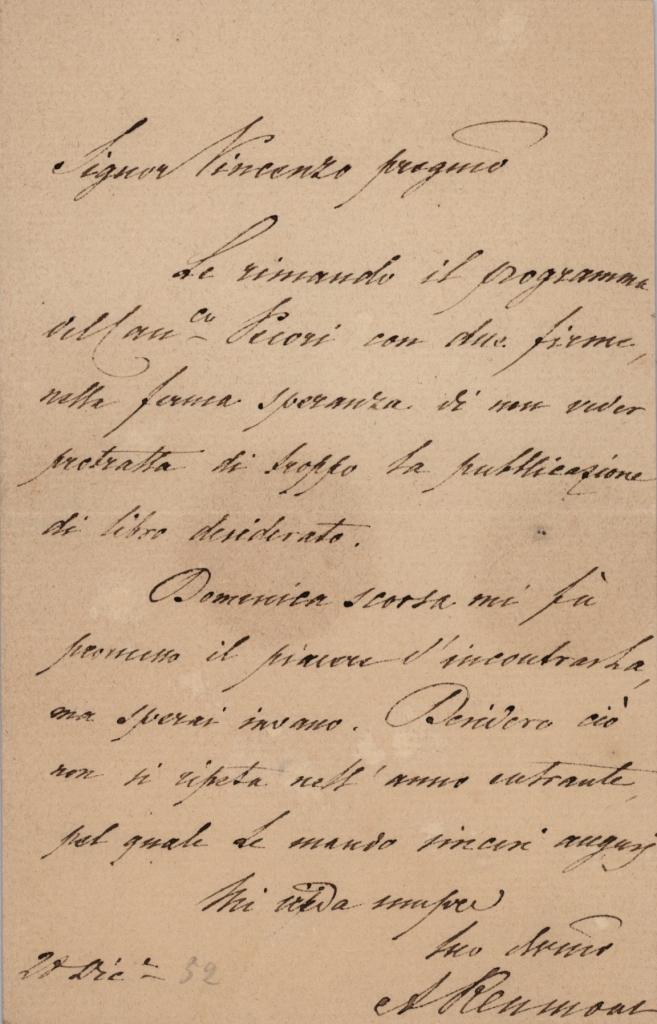 Signor Vincenzo pregmo
Le rimando il programma
del Canco Pecori con due firme,
nella ferma speranza di non veder
protratta di troppo la pubblicazione
di libro desiderato.
Domenica scorsa mi fù
promesso il piacere d'incontrarLa,
ma sperai invano. Desidero ciò
non si ripeta nell'anno entrante,
pel quale Le mando sinceri augurj
Mi creda sempre
Suo devmo
28 Dice 52
A Reumont